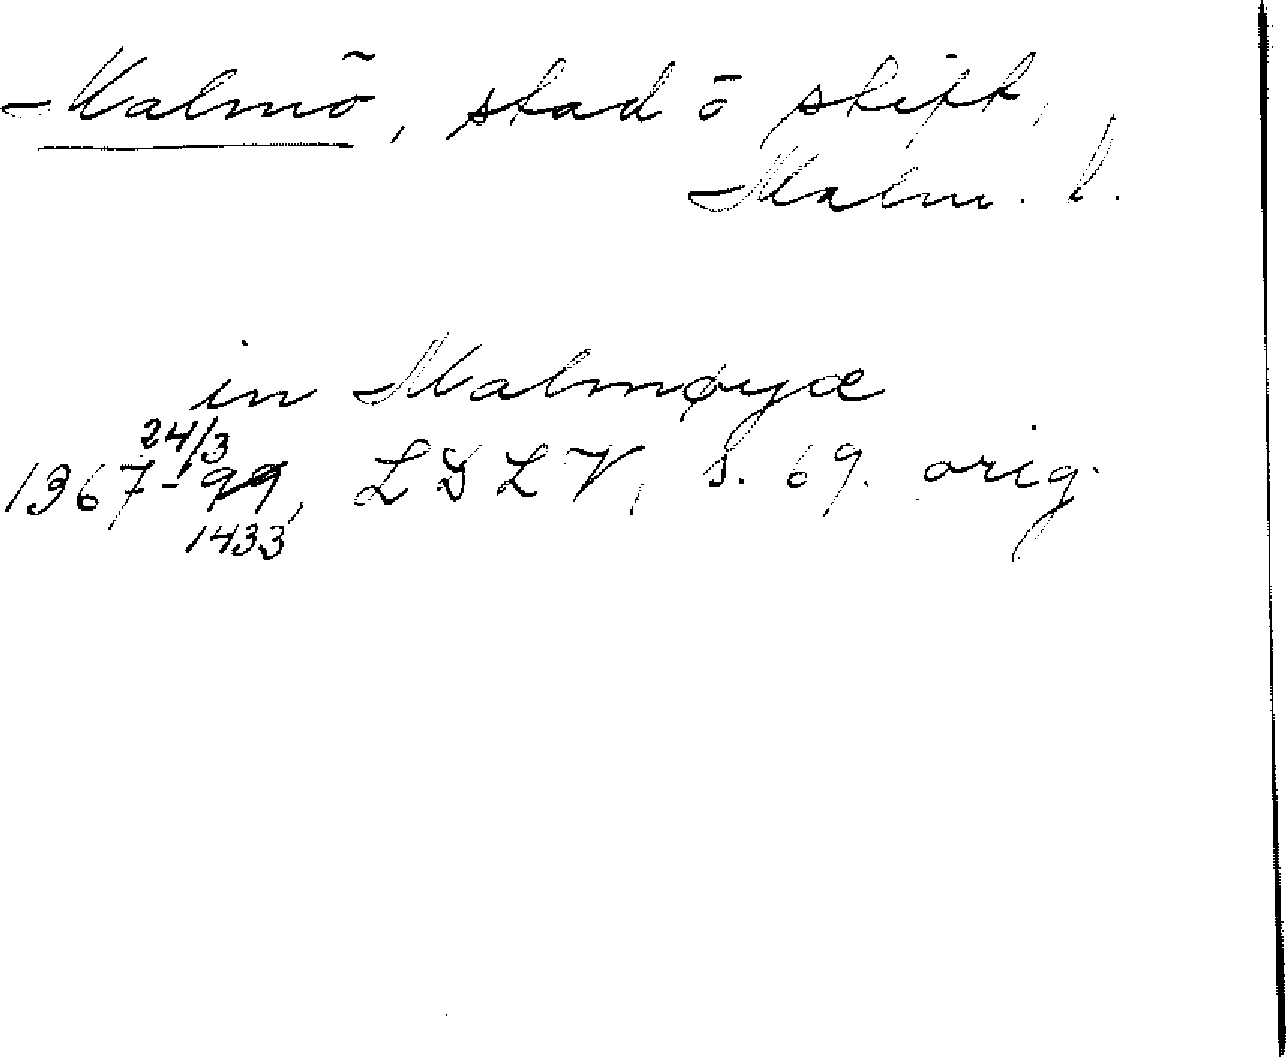 Malmö, stad ö skift,
Malm. l.
in Malmøyæ
24/3
1367-99, LDLV, s. 69. orig.
1433